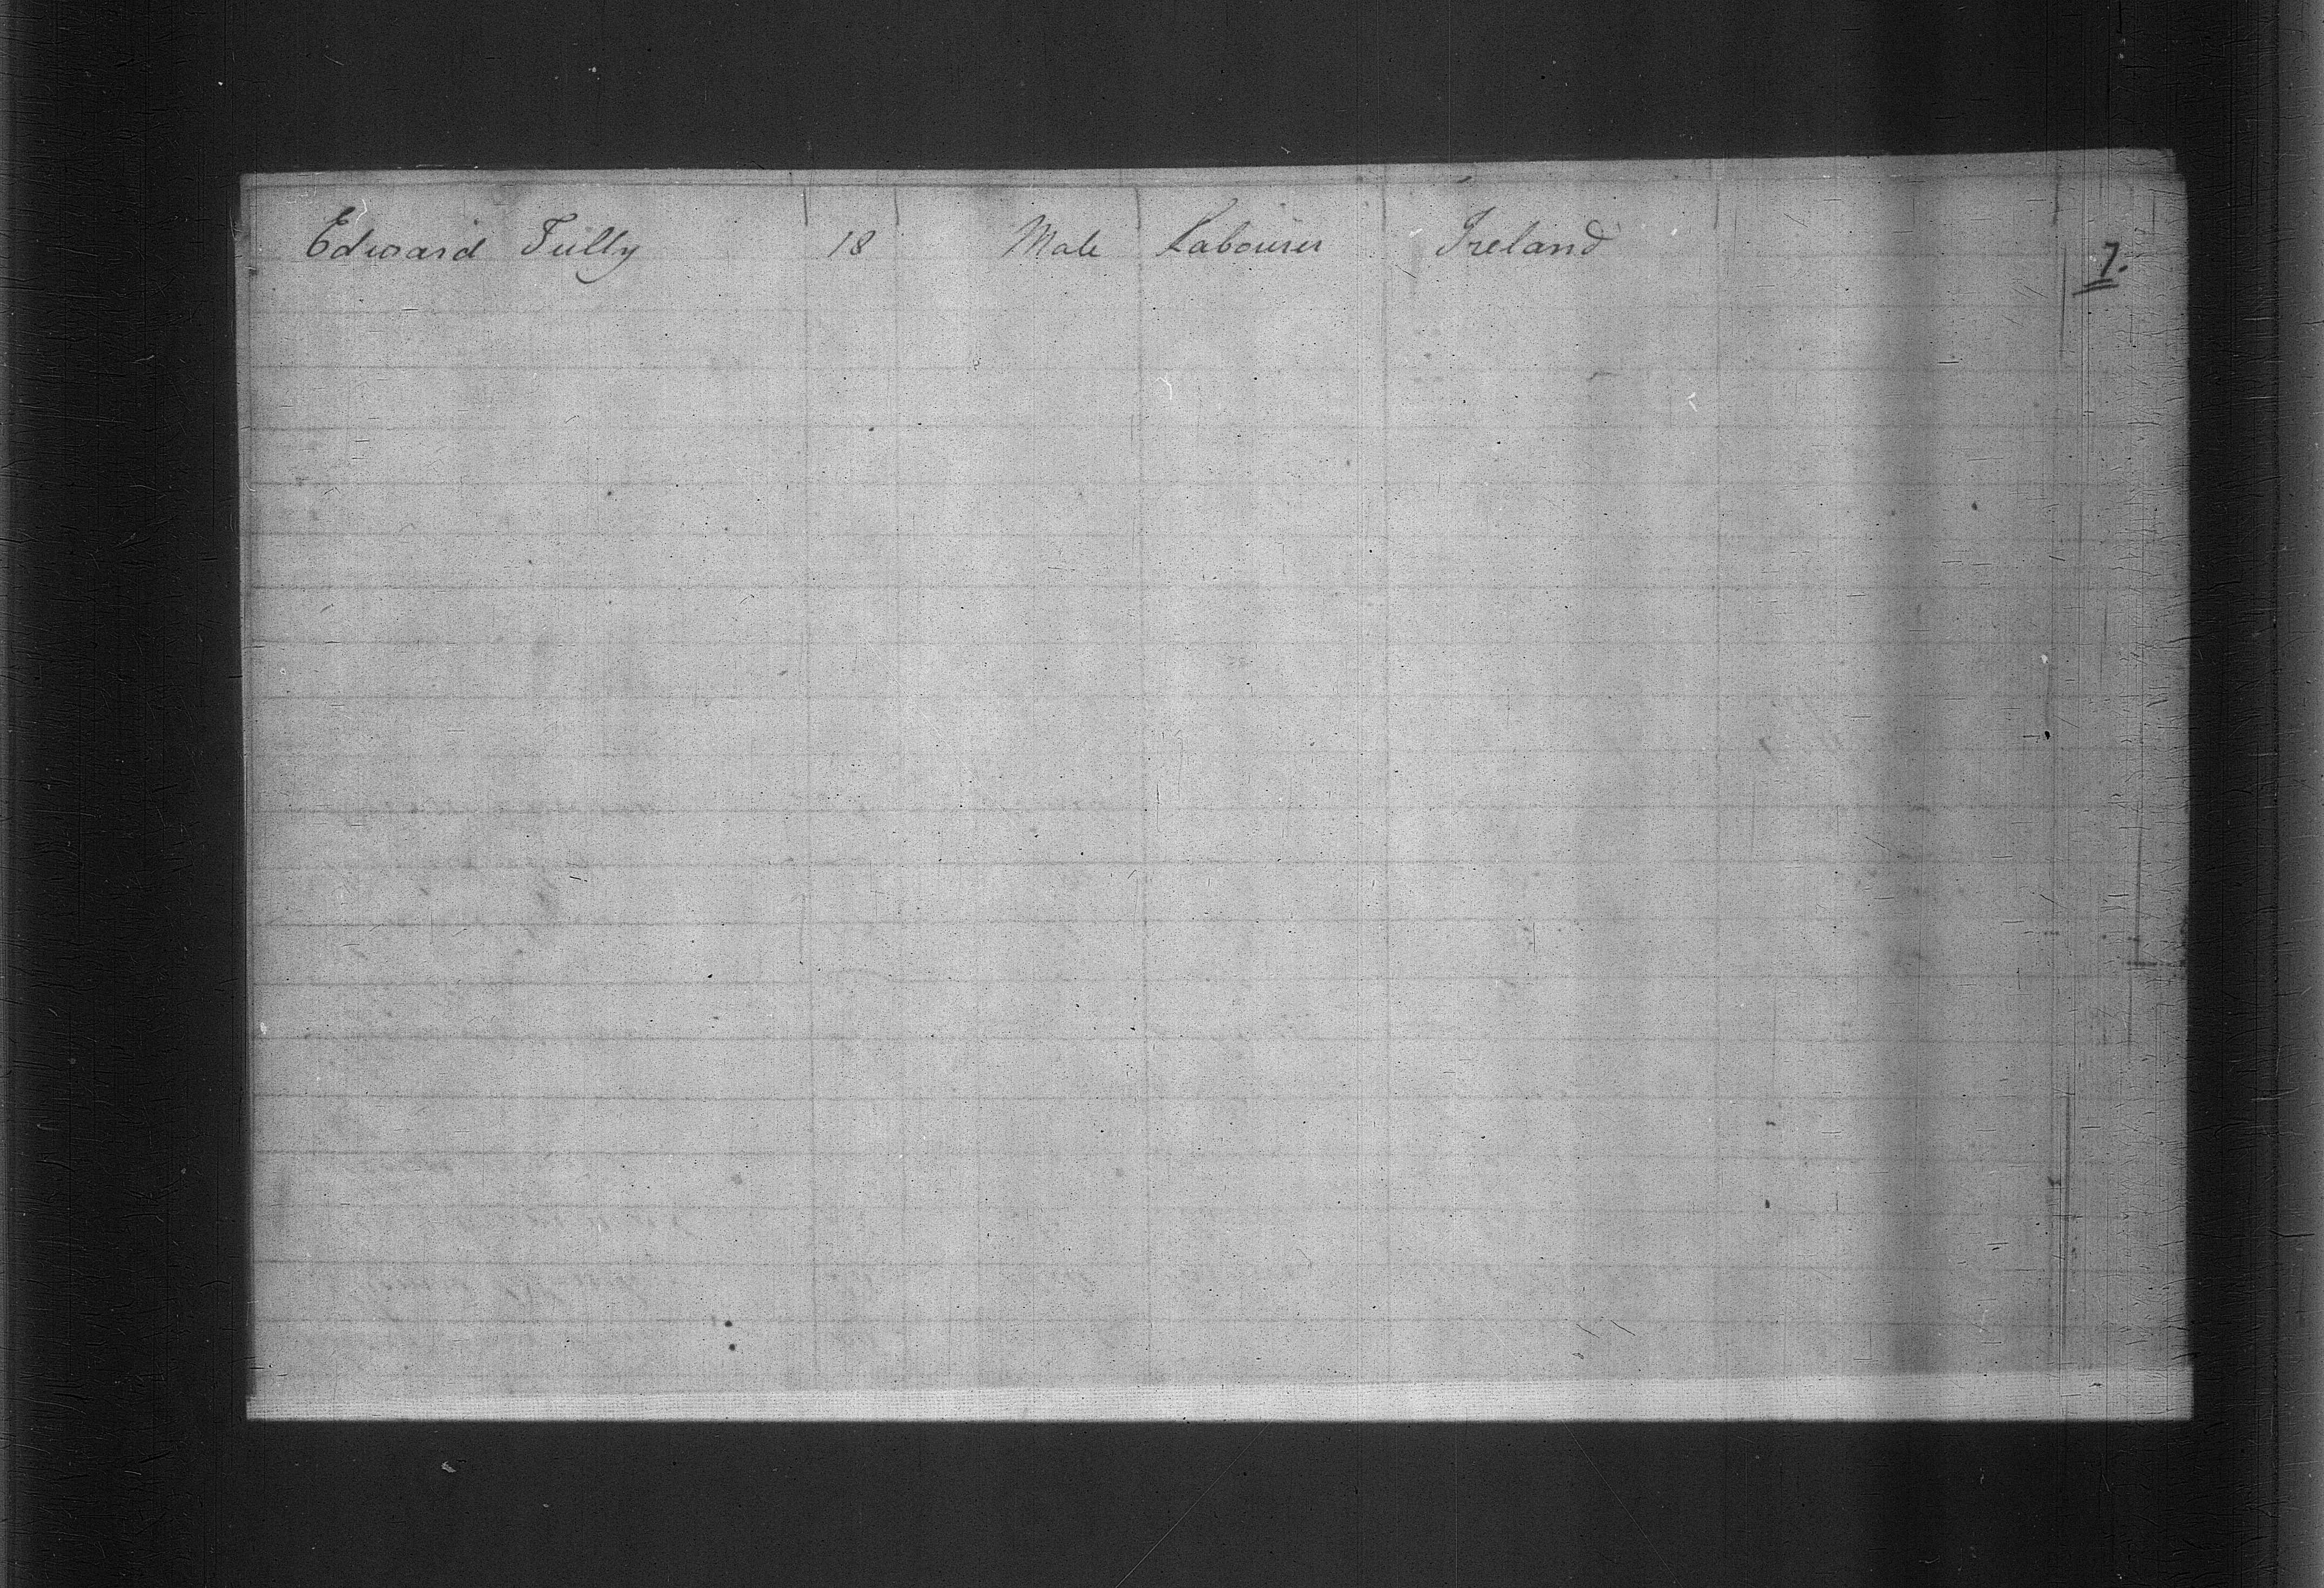 Edward Tully 18 Male Labourer Ireland
7.